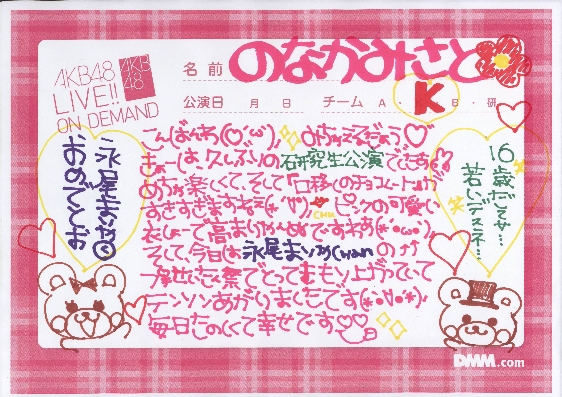 AKB48
LIVE!!
ON DEMAND
AKB
48
名前 のなかみさと
公演日 月 日 チーム A・K B・研
こんばんわ(♡'ω'),みちゃえだよう♡
きょーは、久しぶりの研究生公演でしたよ
めちゃ楽しくて、そして「口移しのチョコレート」が
すきすぎますねぇ(*'∀'*),CHUピンクの可愛い
衣しょーで高まりかめですねわ(*'ω'),
そして、今日は永尾まりやChanの
生たん祭でとってももり上がっていて
テンションあがりましたです(*・∀・*),
毎日たのしくて幸せです♡♡
永尾まりや
おめでとお
16歳だってサ…
若いデスネ…
DMM.com